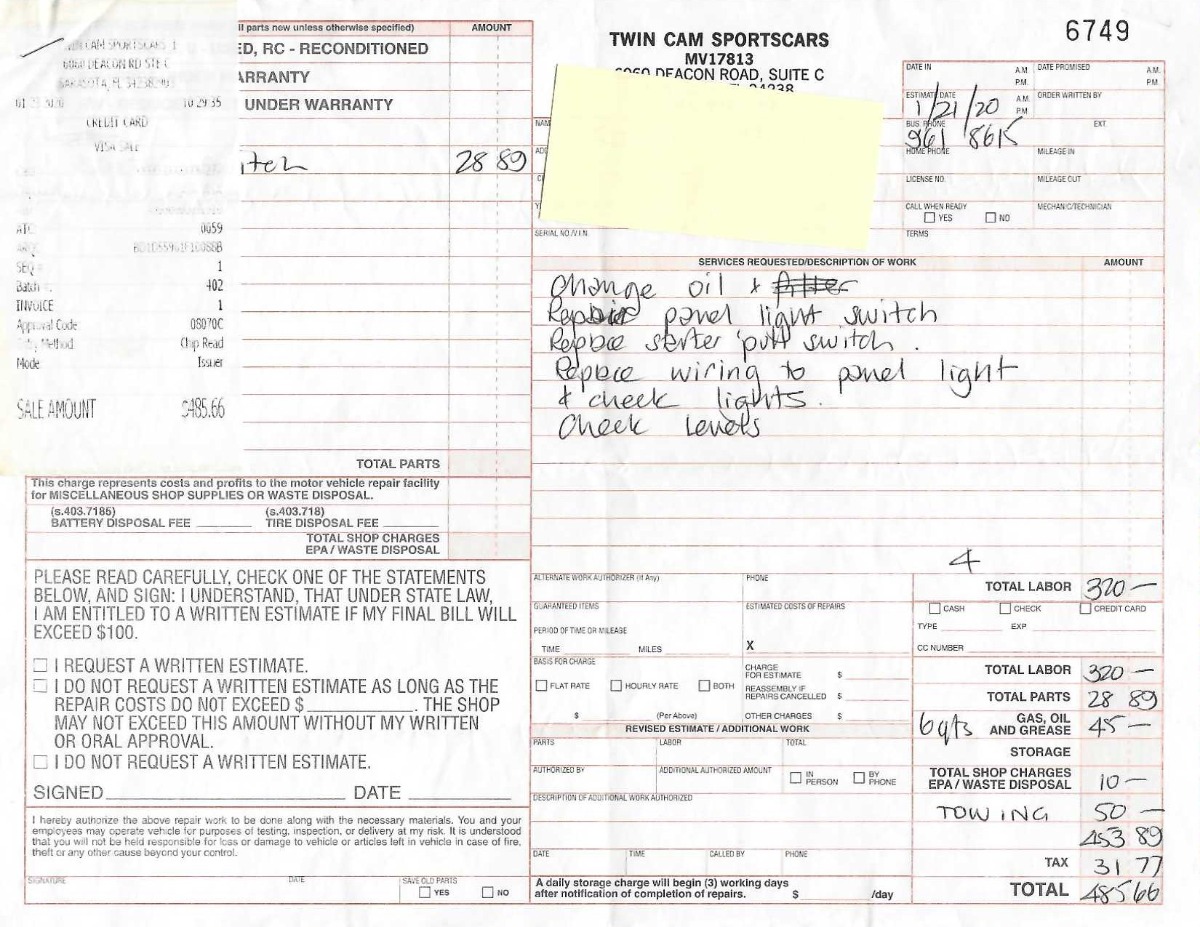 6060 DEACON RD STE C
SARASOTA, FL 34238
10:29:35
CREDIT CARD
VISA SALE
0059
SEQ #: 1
Batch #: 402
INVOICE 1
Approval Code 08070C
Entry Method Chip Read
Mode Issuer
SALE AMOUNT $485.66
ll parts new unless otherwise specified) AMOUNT
ED, RC - RECONDITIONED
ARRANTY
UNDER WARRANTY
itch 28 89
TOTAL PARTS
This charge represents costs and profits to the motor vehicle repair facility
for MISCELLANEOUS SHOP SUPPLIES OR WASTE DISPOSAL.
(s.403.7185) (s.403.718)
BATTERY DISPOSAL FEE TIRE DISPOSAL FEE
TOTAL SHOP CHARGES
EPA / WASTE DISPOSAL
PLEASE READ CAREFULLY, CHECK ONE OF THE STATEMENTS
BELOW, AND SIGN: I UNDERSTAND, THAT UNDER STATE LAW,
I AM ENTITLED TO A WRITTEN ESTIMATE IF MY FINAL BILL WILL
EXCEED $100.
I REQUEST A WRITTEN ESTIMATE.
I DO NOT REQUEST A WRITTEN ESTIMATE AS LONG AS THE
REPAIR COSTS DO NOT EXCEED $ . THE SHOP
MAY NOT EXCEED THIS AMOUNT WITHOUT MY WRITTEN
OR ORAL APPROVAL.
I DO NOT REQUEST A WRITTEN ESTIMATE.
SIGNED DATE
I hereby authorize the above repair work to be done along with the necessary materials. You and your
employees may operate vehicle for purposes of testing, inspection, or delivery at my risk. It is understood
that you will not be held responsible for loss or damage to vehicle or articles left in vehicle in case of fire,
theft or any other cause beyond your control.
SIGNATURE DATE SAVE OLD PARTS
YES NO
6749
TWIN CAM SPORTSCARS
MV17813
6060 DEACON ROAD, SUITE C
DATE IN A.M. P.M. DATE PROMISED A.M. P.M.
ESTIMATE DATE A.M. P.M. ORDER WRITTEN BY
1/21/20
BUS. PHONE EXT.
961 8615
HOME PHONE MILEAGE IN
LICENSE NO. MILEAGE OUT
CALL WHEN READY MECHANIC/TECHNICIAN
YES NO
SERIAL NO./V.I.N. TERMS
SERVICES REQUESTED/DESCRIPTION OF WORK AMOUNT
Change oil & filter
Replace panel light switch
Replace starter pull switch.
Replace wiring to panel light
& check lights.
Check Levels
4
ALTERNATE WORK AUTHORIZER (If Any) PHONE
TOTAL LABOR 320 —
GUARANTEED ITEMS ESTIMATED COSTS OF REPAIRS
CASH CHECK CREDIT CARD
TYPE EXP
PERIOD OF TIME OR MILEAGE
TIME MILES X
CC NUMBER
BASIS FOR CHARGE
FLAT RATE HOURLY RATE BOTH
$ (Per Above)
CHARGE FOR ESTIMATE $
REASSEMBLY IF REPAIRS CANCELLED $
OTHER CHARGES $
TOTAL LABOR 320 —
TOTAL PARTS 28 89
6 qts GAS, OIL AND GREASE 45 —
STORAGE
TOTAL SHOP CHARGES
EPA / WASTE DISPOSAL 10 —
TOWING 50 —
453 89
TAX 31 77
TOTAL 485 66
REVISED ESTIMATE / ADDITIONAL WORK
PARTS LABOR TOTAL
AUTHORIZED BY ADDITIONAL AUTHORIZED AMOUNT IN PERSON BY PHONE
DESCRIPTION OF ADDITIONAL WORK AUTHORIZED
DATE TIME CALLED BY PHONE
A daily storage charge will begin (3) working days
after notification of completion of repairs. $ /day